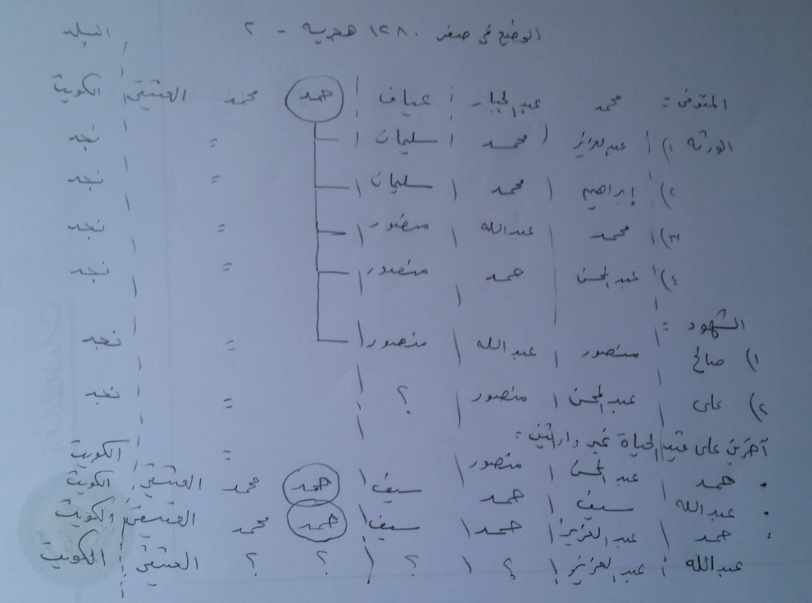 الوضع في صفر ١٢٨٠ هجرية - ٢ البلد
المتوفى : محمد عبدالجبار عياف حمد محمد العتيقي الكويت
الورثة ١) عبدالعزيز محمد سليمان = نجد
٢) إبراهيم محمد سليمان = نجد
٣) محمد عبدالله منصور = نجد
٤) عبدالمحسن حمد منصور = نجد
الشهود :
١) صالح منصور عبدالله منصور = نجد
٢) على عبدالمحسن منصور ؟ = نجد
آخرين على قيد الحياة غير وارثين :
• حمد عبدالمحسن منصور = الكويت
• عبدالله سيف حمد سيف حمد محمد العتيقي الكويت
• حمد عبدالعزيز حمد سيف حمد محمد العتيقي الكويت
عبدالله عبدالعزيز ؟ ؟ ؟ ؟ العتيقي الكويت